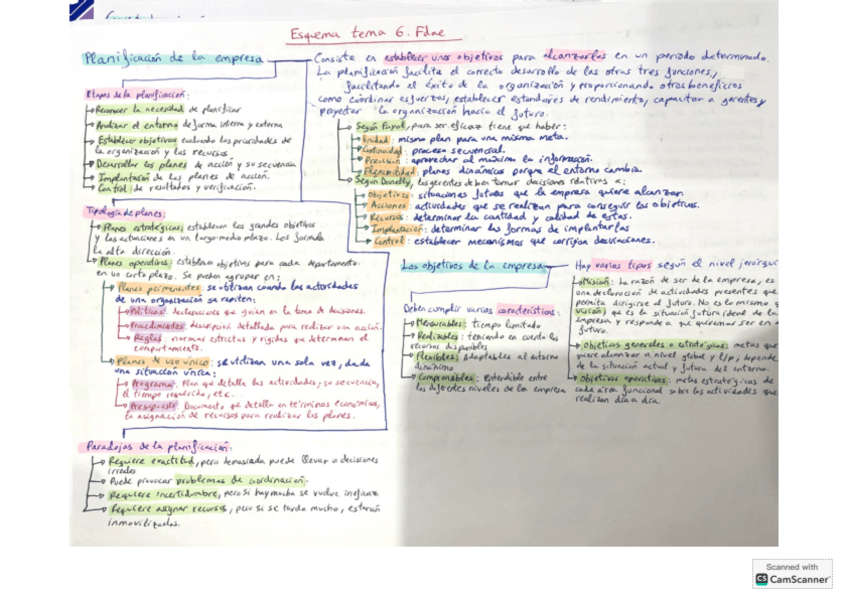 Esquema tema 6. Fdae
Planificación de la empresa
Consiste en establecer unos objetivos para alcanzarlos en un periodo determinado.
La planificación facilita el correcto desarrollo de las otras tres funciones,
facilitando el éxito de la organización y proporcionando otros beneficios
como coordinar esfuerzos, establecer estandares de rendimiento, capacitar a gerentes y
proyectar la organización hacia el futuro.
Según Fayol, para ser eficaz tiene que haber:
Unidad: mismo plan para una misma meta.
Continuidad: proceso secuencial.
Precisión: aprovechar al máximo la información.
Flexibilidad: planes dinámicos porque el entorno cambia.
Según Donelly, los gerentes deben tomar decisiones relativas a:
Objetivos: situaciones futuras que la empresa quiere alcanzar.
Acciones: actividades que se realizan para conseguir los objetivos.
Recursos: determinar la cantidad y calidad de estos.
Implantación: determinar las formas de implantarlas
Control: establecer mecanismos que corrijan desviaciones.
Etapas de la planificación:
Reconocer la necesidad de planificar
Analizar el entorno de forma interna y externa
Establecer objetivos evaluando las prioridades de
la organización y los recursos
Desarrollar los planes de acción y su secuencia
Implantación de los planes de acción.
Control de resultados y verificación.
Tipología de planes:
Planes estratégicos: establecen los grandes objetivos
y las actuaciones en un largo-medio plazo. Los formula
la alta dirección
Planes operativos: establecen objetivos para cada departamento
en un corto plazo. Se pueden agrupar en:
Planes permanentes: se utilizan cuando las actividades
de una organización se repiten:
Políticas: declaraciones que guían en la toma de decisiones.
Procedimientos: descripción detallada para realizar una acción.
Reglas: normas estrictas y rígidas que determinan el
comportamiento.
Planes de uso único: se utilizan una sola vez, dada
una situación única:
Programa: Plan que detalla las actividades, su secuencia,
el tiempo requerido, etc.
Presupuesto: Documento que detalla en términos económicos,
la asignación de recursos para realizar los planes.
Paradojas de la planificación:
Requiere exactitud, pero demasiada puede llevar a decisiones
irreales
Puede provocar problemas de coordinación.
Requiere incertidumbre, pero si hay mucha se vuelve ineficaz
Requiere asignar recursos, pero si se tarda mucho, estarán
inmovilizados.
Los objetivos de la empresa
Deben cumplir varias características:
Mensurables: tiempo limitado
Realizables: teniendo en cuenta los
recursos disponibles
Flexibles: Adaptables al entorno
dinámico
Comprensibles: Entendible entre
los diferentes niveles de la empresa
Hay varios tipos según el nivel jerárqui
Misión: La razón de ser de la empresa, es
una declaración de actividades presentes que
permita dirigirse al futuro. No es lo mismo q
visión, que es la situación futura ideal de la
empresa y responde a que queremos ser en
futuro.
Objetivos generales o estratégicos: metas que
quiere alcanzar a nivel global y l/p, depende
de la situación actual y futura del entorno.
Objetivos operativos: metas estratégicas de
cada área funcional sobre las actividades que
realizan día a día.
Scanned with
CS CamScanner